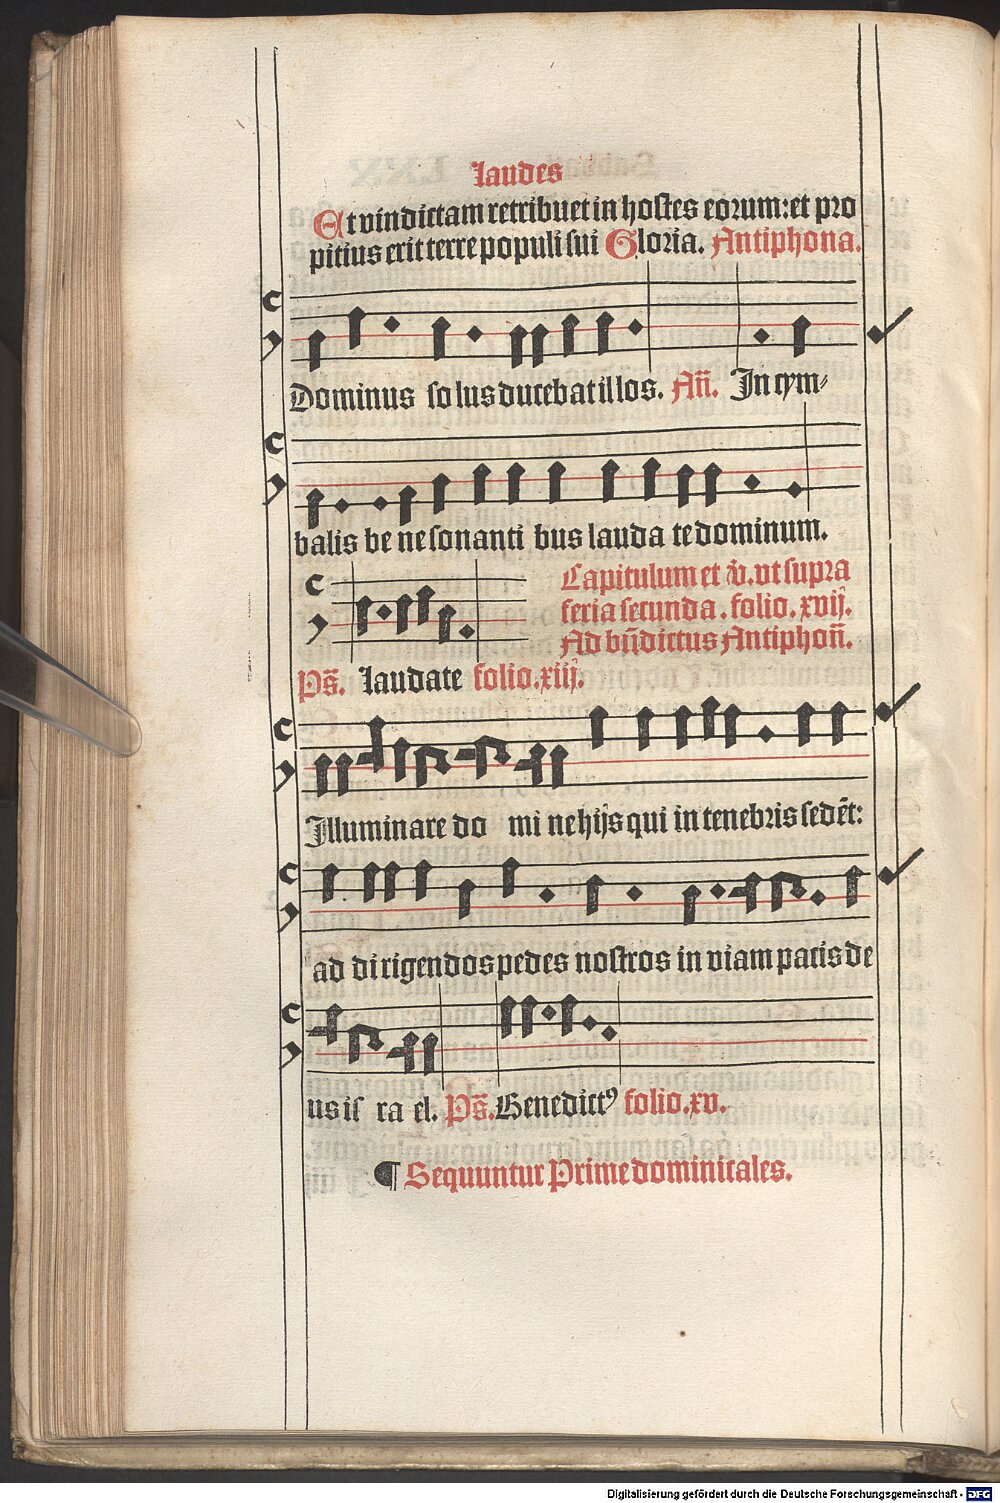 Laudes
Et vindictam retribuet in hostes eorum: et pro
pitius erit terre populi sui Gloria. Antiphona.
Dominus so lus ducebat illos. Añ. In cym-
balis be ne sonanti bus lauda te dominum.
Capitulum et v̄. vt supra
feria secunda. folio. xvij.
Ad bn̄dictus Antiphon̄.
Ps̄. Laudate folio. xiij.
Illuminare do mi ne hijs qui in tenebris sedēt:
ad dirigendos pedes nostros in viam pacis de
us is ra el. Ps̄. Benedictꝰ folio. xv.
¶ Sequuntur Prime dominicales.
Digitalisierung gefördert durch die Deutsche Forschungsgemeinschaft - DFG